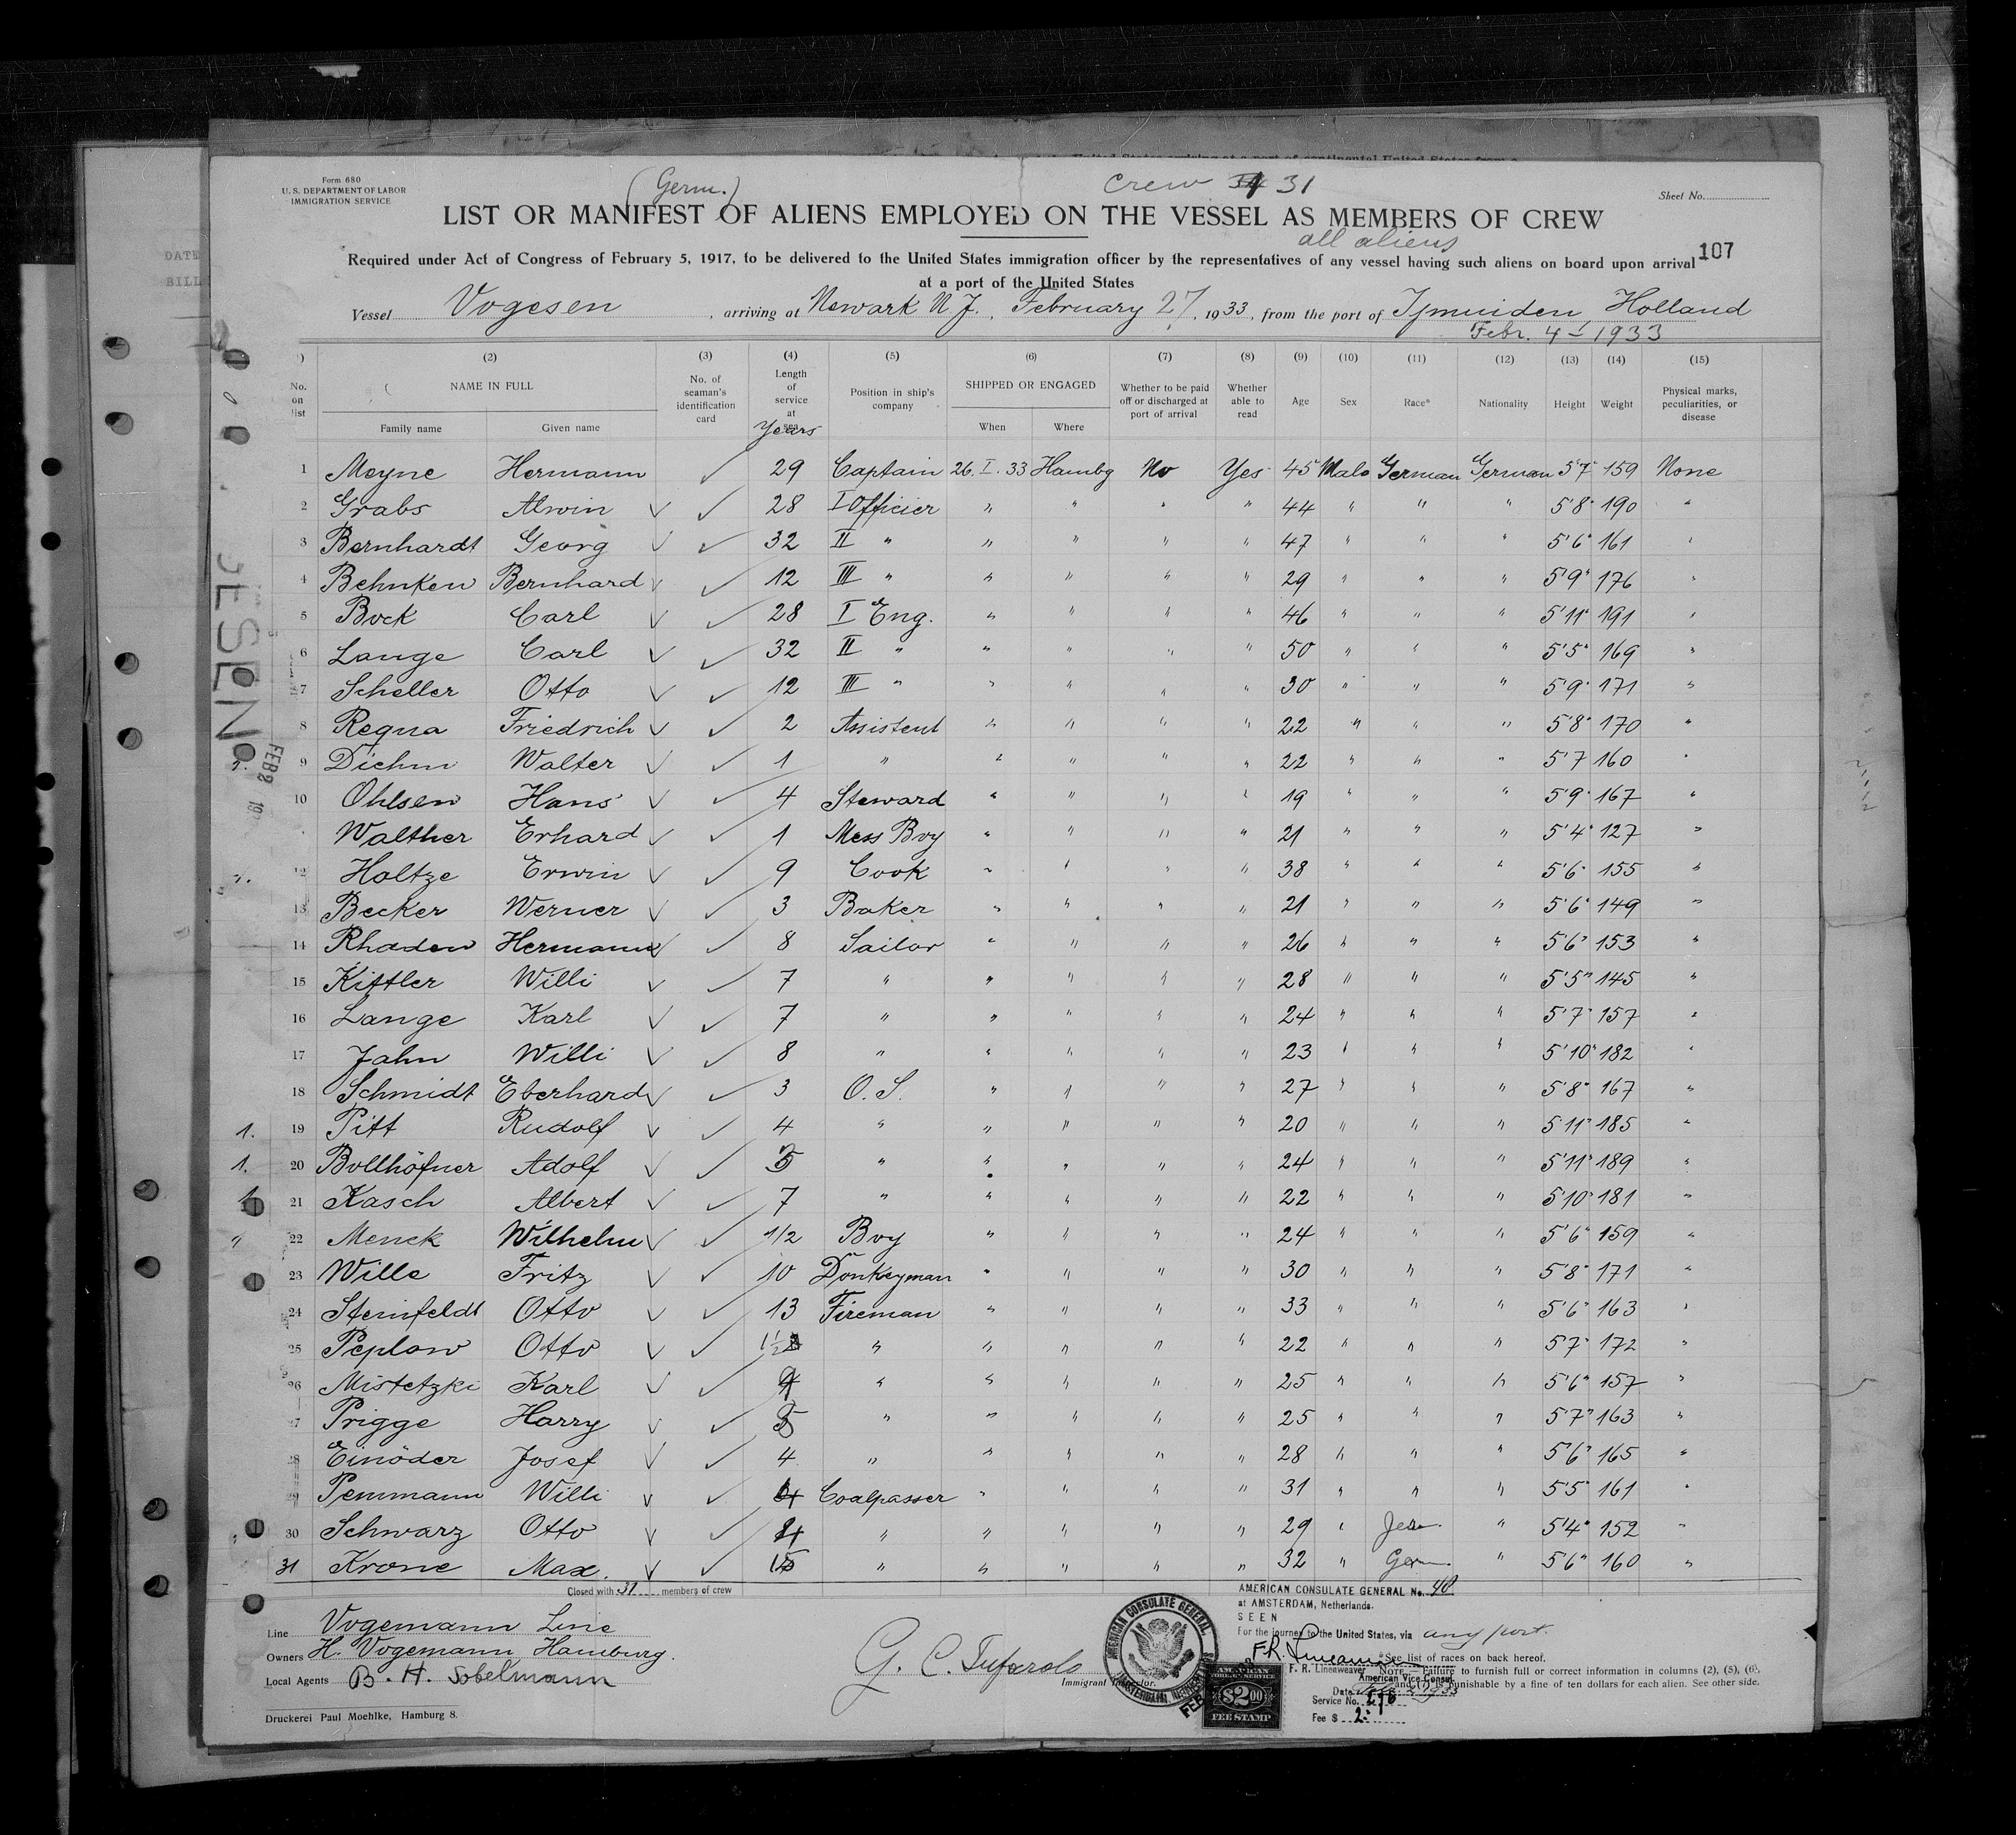 Form 680
U. S. DEPARTMENT OF LABOR
IMMIGRATION SERVICE
(Germ.)
Crew 31
Sheet No.
LIST OR MANIFEST OF ALIENS EMPLOYED ON THE VESSEL AS MEMBERS OF CREW
all aliens
107
Required under Act of Congress of February 5, 1917, to be delivered to the United States immigration officer by the representatives of any vessel having such aliens on board upon arrival
at a port of the United States
Vessel Vogesen, arriving at Newark N.J., February 27, 1933, from the port of Ijmuiden, Holland
Febr. 4 - 1933
(2) (3) (4) (5) (6) (7) (8) (9) (10) (11) (12) (13) (14) (15)
No. on list NAME IN FULL Family name Given name No. of seaman's identification card Length of service at sea Years Position in ship's company SHIPPED OR ENGAGED When Where Whether to be paid off or discharged at port of arrival Whether able to read Age Sex Race* Nationality Height Weight Physical marks, peculiarities, or disease
1 Meyne Hermann ✓ 29 Captain 26. I. 33 Hambg No Yes 45 Male German German 5'7" 159 None
2 Grabs Alwin ✓ ✓ 28 I Officier " " " " 44 " " " 5'8" 190 "
3 Bernhardt Georg ✓ ✓ 32 II " " " " " 47 " " " 5'6" 161 "
4 Behnken Bernhard ✓ ✓ 12 III " " " " " 29 " " " 5'9" 176 "
5 Bock Carl ✓ ✓ 28 I Eng. " " " " 46 " " " 5'11" 191 "
6 Lange Carl ✓ ✓ 32 II " " " " " 50 " " " 5'5" 169 "
7 Scheller Otto ✓ ✓ 12 III " " " " " 30 " " " 5'9" 171 "
8 Regna Friedrich ✓ ✓ 2 Assistent " " " " 22 " " " 5'8" 170 "
9 Diehm Walter ✓ ✓ 1 " " " " " 22 " " " 5'7 160 "
10 Ohlsen Hans ✓ ✓ 4 Steward " " " " 19 " " " 5'9" 167 "
Walther Erhard ✓ ✓ 1 Mess Boy " " " " 21 " " " 5'4" 127 "
12 Holtze Erwin ✓ ✓ 9 Cook " " " " 38 " " " 5'6" 155 "
13 Becker Werner ✓ ✓ 3 Baker " " " " 21 " " " 5'6" 149 "
14 Rhaden Hermann ✓ ✓ 8 Sailor " " " " 26 " " " 5'6" 153 "
15 Kittler Willi ✓ ✓ 7 " " " " " 28 " " " 5'5" 145 "
16 Lange Karl ✓ ✓ 7 " " " " " 24 " " " 5'7" 157 "
17 Jahn Willi ✓ ✓ 8 " " " " " 23 " " " 5'10" 182 "
18 Schmidt Eberhard ✓ ✓ 3 O. S. " " " " 27 " " " 5'8" 167 "
1. 19 Pitt Rudolf ✓ ✓ 4 " " " " " 20 " " " 5'11" 185 "
1. 20 Bollhöfner Adolf ✓ ✓ " " " " " 24 " " " 5'11" 189 "
1 21 Kasch Albert ✓ ✓ 7 " " " " " 22 " " " 5'10" 181 "
" 22 Menck Wilhelm ✓ ✓ 1/2 Boy " " " " 24 " " " 5'6" 159 "
23 Wille Fritz ✓ ✓ 10 Donkeyman " " " " 30 " " " 5'8" 171 "
24 Steinfeldt Otto ✓ ✓ 13 Fireman " " " " 33 " " " 5'6" 163 "
25 Peplow Otto ✓ ✓ 1½ " " " " " 22 " " " 5'7" 172 "
26 Mistetzki Karl ✓ ✓ " " " " " 25 " " " 5'6" 157 "
27 Prigge Harry ✓ ✓ " " " " " 25 " " " 5'7" 163 "
28 Einöder Josef ✓ ✓ 4 " " " " " 28 " " " 5'6" 165 "
29 Pemmann Willi ✓ ✓ Coalpasser " " " " 31 " " " 5'5" 161 "
30 Schwarz Otto ✓ ✓ " " " " " 29 " " 5'4" 152 "
31 Krone Max. ✓ ✓ " " " " " 32 " Germ. " 5'6" 160 "
Closed with 31 members of crew
Line Vogemann Line
Owners H. Vogemann, Hamburg.
Local Agents B. H. Sobelmann
Druckerei Paul Moehlke, Hamburg 8.
Immigrant Inspector.
AMERICAN CONSULATE GENERAL
AMSTERDAM, NETHERLANDS
FEB
AMERICAN FOREIGN SERVICE
$2.00
FEE STAMP
AMERICAN CONSULATE GENERAL No. 40
at AMSTERDAM, Netherlands.
SEEN
For the journey to the United States, via any port.
F. R. Lineaweaver
American Vice Consul
Date
Service No.
Fee $ 2.
*See list of races on back hereof.
NOTE.—Failure to furnish full or correct information in columns (2), (5), (6), and (7) is punishable by a fine of ten dollars for each alien. See other side.
FEB 2
DATE
BILL